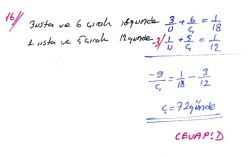 16//
3 usta ve 6 çırak 18 günde 3/U + 6/Ç = 1/18
1 usta ve 5 çırak 12 günde -3/ 1/U + 5/Ç = 1/12
-9/Ç = 1/18 - 3/12
Ç = 72 günde
CEVAP: D